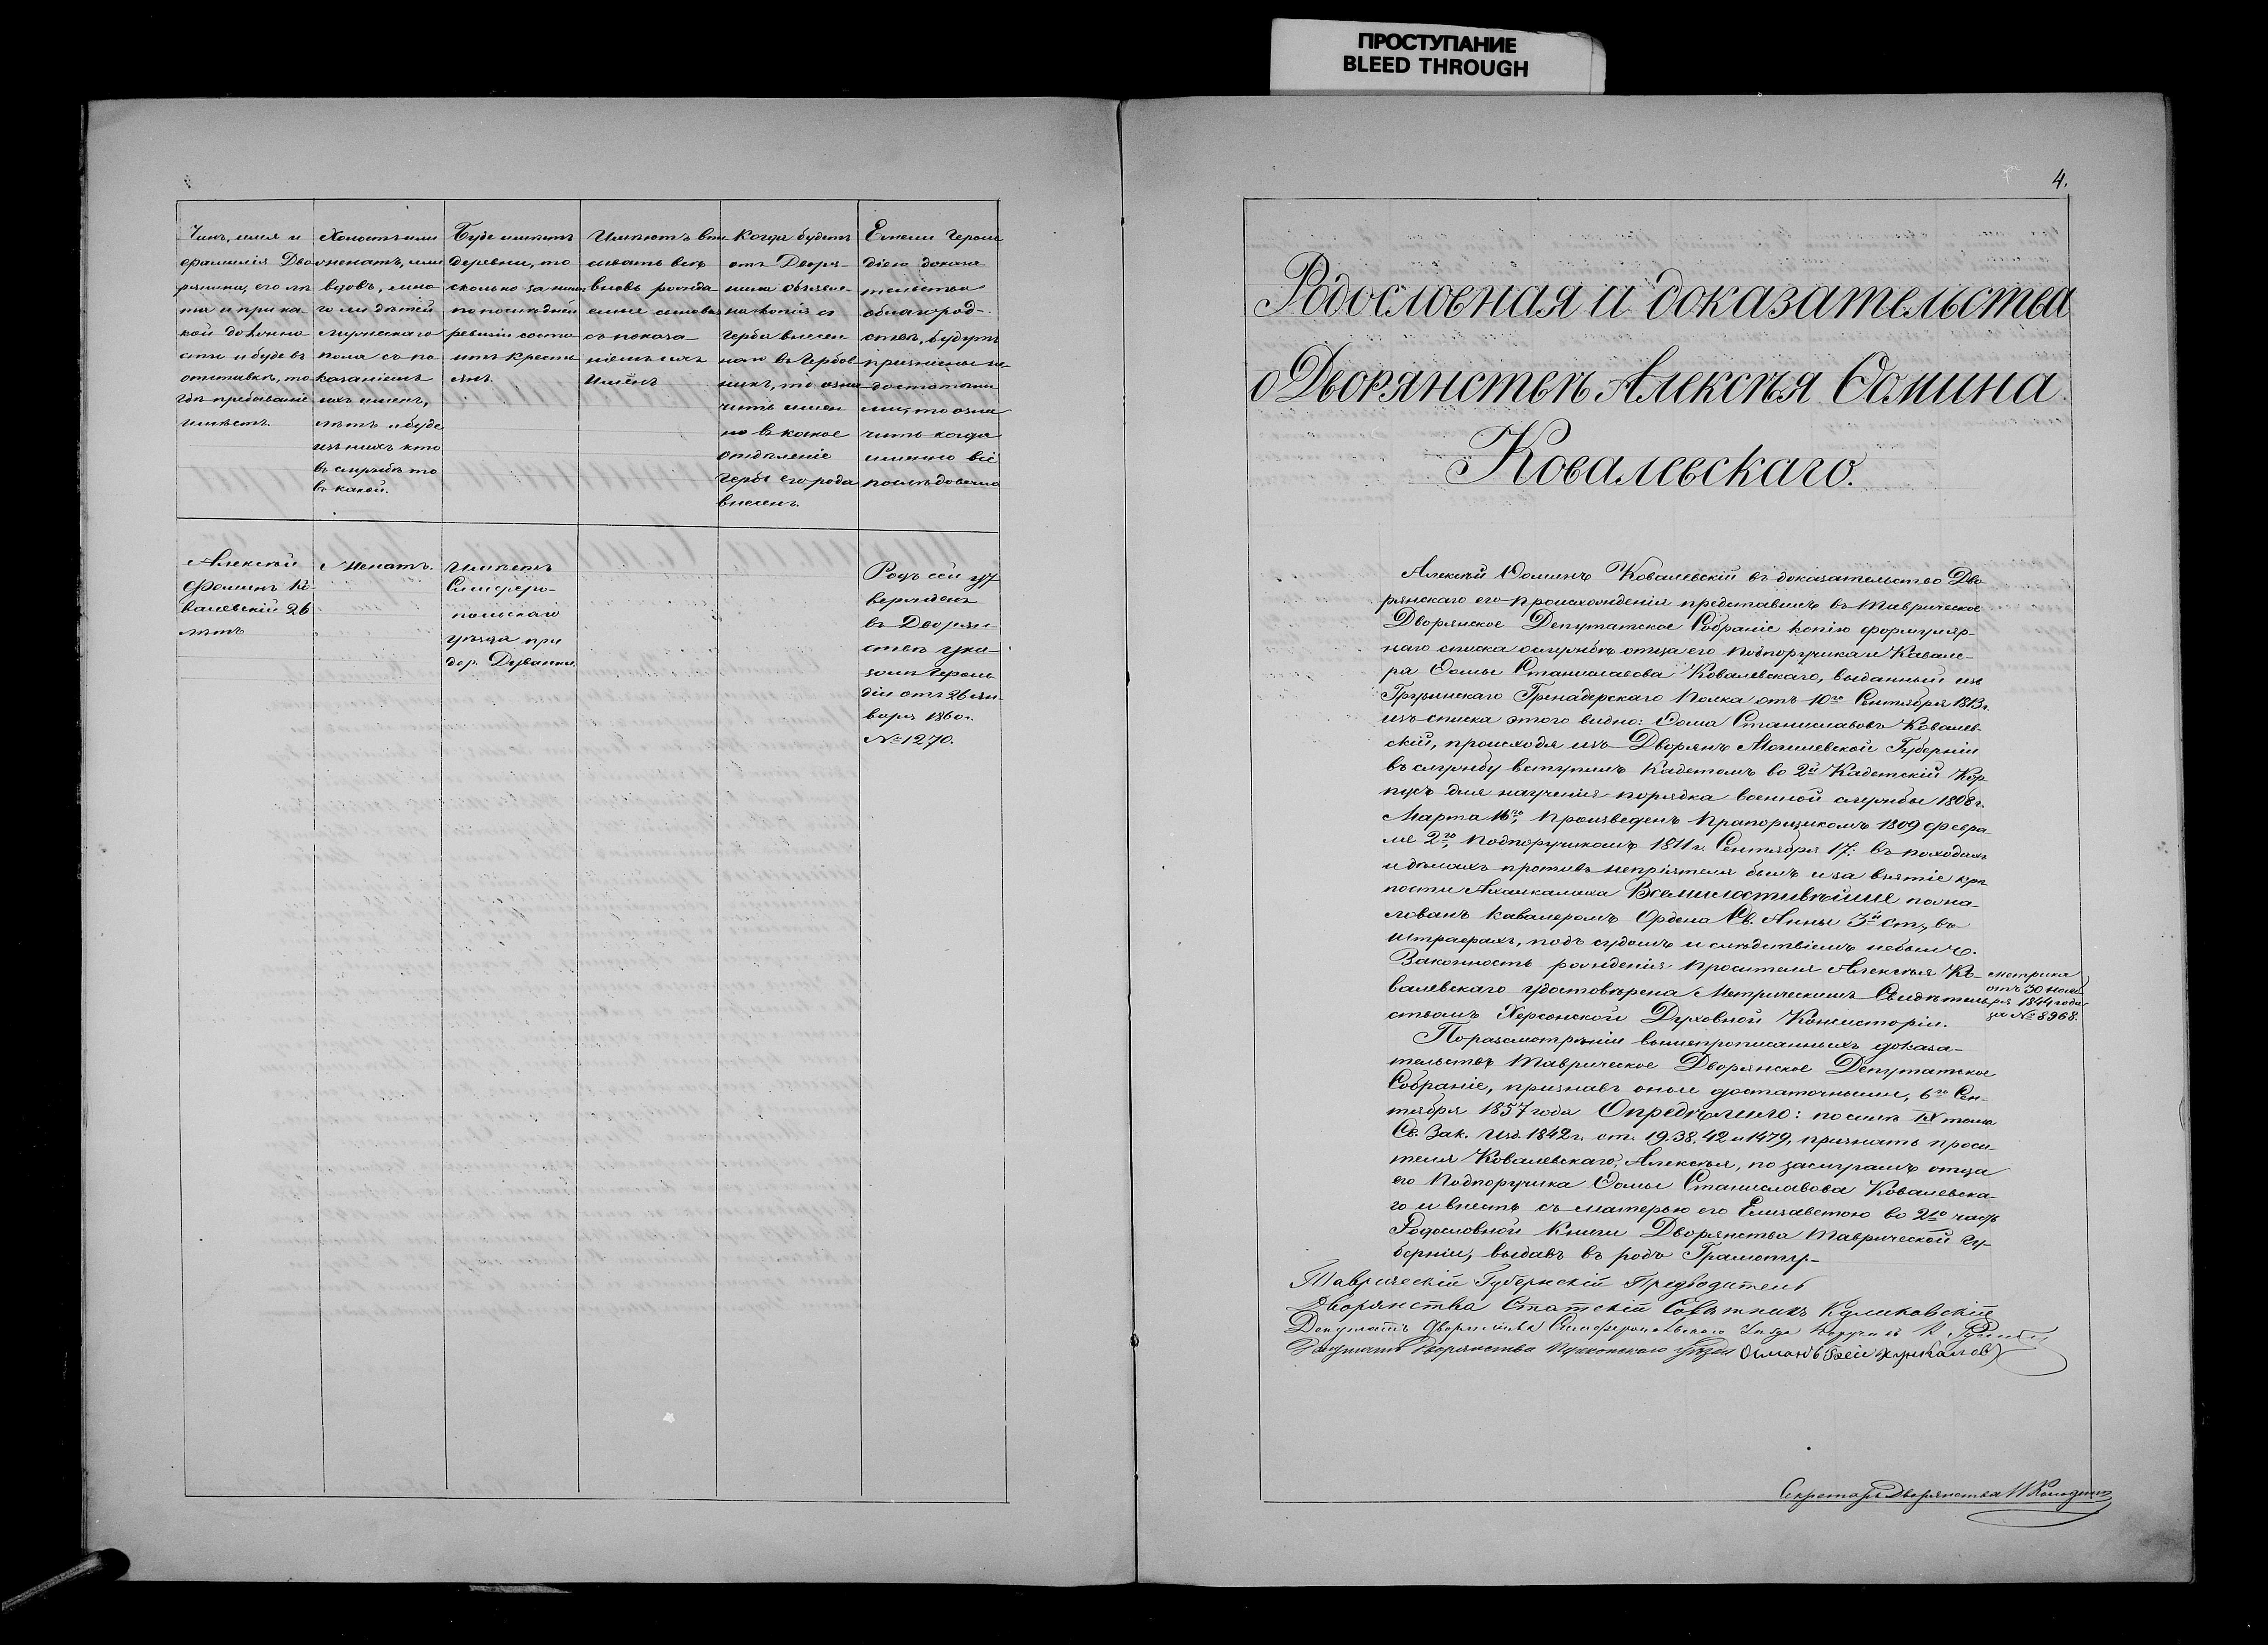 ПРОСТУПАНИЕ
BLEED THROUGH
Чинъ, имя и
фамилія Дво
рянина, его лѣ
та и при ка-
кой должно
сти и буде въ
отставкѣ, то
гдѣ пребываніе
имѣетъ.
Холостъ или
женатъ, или
вдовъ, мно
го ли дѣтей
мужескаго
пола съ по
казаніемъ
ихъ именъ,
лѣтъ и буде
изъ нихъ кто
въ службѣ то
въ какой.
Буде имѣетъ
деревни, то
сколько за ними
по послѣдней
ревизіи состо
итъ крестья
янъ.
Имѣютъ впи
сывать всѣхъ
вновь рожда
емые сыновья
съ показа-
ніемъ ихъ
имёнъ
Когда будетъ
отъ Дворя-
нина объявле-
на копія съ
герба внесен
наго въ Гербов
никъ, то озна
чить имен
но въ какое
отдѣленіе
гербъ его рода
внесенъ.
Ежели Героль
діею доказа
тельства
о благород-
ствѣ, будутъ
признаны не
достаточны
ми, то озна
чить когда
именно всё
послѣдовало
Алексѣй
Фоминъ Ко-
валевскій 26
лѣтъ
Женатъ.
Имѣетъ
Симферо-
польскаго
уѣзда при
дер. Дуванкы
Родъ сей ут
вержденъ
въ Дворян-
ствѣ ука-
зомъ Героль
діи отъ 26 ян-
варя 1860 г.
№ 1270.
4.
Родословная и доказательства
о Дворянствѣ Алексѣя Ѳомина
Ковалевскаго.
Алексѣй Ѳоминъ Ковалевскій въ доказательство Дво
рянскаго его происхожденія представилъ въ Таврическое
Дворянское Депутатское Собраніе копію формуляр-
наго списка о службѣ отца его Подпоручика и Кавале-
ра Ѳомы Станиславова Ковалевскаго, выданный изъ
Грузинскаго Гренадерскаго Полка отъ 10го Сентября 1813 г.
изъ списка этого видно: Ѳома Станиславовъ Ковалев-
скій, происходя изъ Дворянъ Могилевской Губерніи
въ службу вступилъ Кадетомъ во 2й Кадетскій Кор
пусъ для научения порядка военной службы 1808 г.
Марта 16го, произведенъ Прапорщикомъ 1809 февра-
ля 2го, Подпоручикомъ 1811 г. Сентября 17: въ походахъ
и дѣлахъ противъ непріятеля былъ и за взятіе крѣ
пости Ахалкалаха Всемилостивѣйше пожа-
лованъ Кавалеромъ Ордена Св. Анны 3й ст., въ
штрафахъ, подъ судомъ и слѣдствіемъ небылъ.
Законность рожденія просителя Алексѣя Ко-
валевскаго удостовѣрена Метрическимъ Свидѣтель
ствомъ Херсонской Духовной Консисторіи.
метрика
отъ 30 нояб
ря 1844 года
за № 8968.
По разсмотрѣніи вышепрописанныхъ доказа-
тельствъ Таврическое Дворянское Депутатское
Собраніе, признавъ оныя достаточными, 6го Сен-
тября 1857 года Опредѣлило: по силѣ IX тома
Св. Зак. Изд. 1842 г. ст. 19. 38. 42 и 1479, признать проси-
теля Ковалевскаго, Алексѣя, по заслугамъ отца
его Подпоручика Ѳомы Станиславова Ковалевска-
го и внесть съ матерью его Елизаветою во 2ю часть
Родословной Книги Дворянства Таврической Гу-
берніи, выдавъ въ родъ Грамоту.-
Таврическій Губернскій Предводитель
Дворянства Статскій Совѣтникъ Куликовскій
Депутатъ Дворянства Симферопольскаго Уѣзда Поручикъ
Депутатъ Дворянства Перекопскаго уѣзда Османъ бей
Секретарь Дворянства